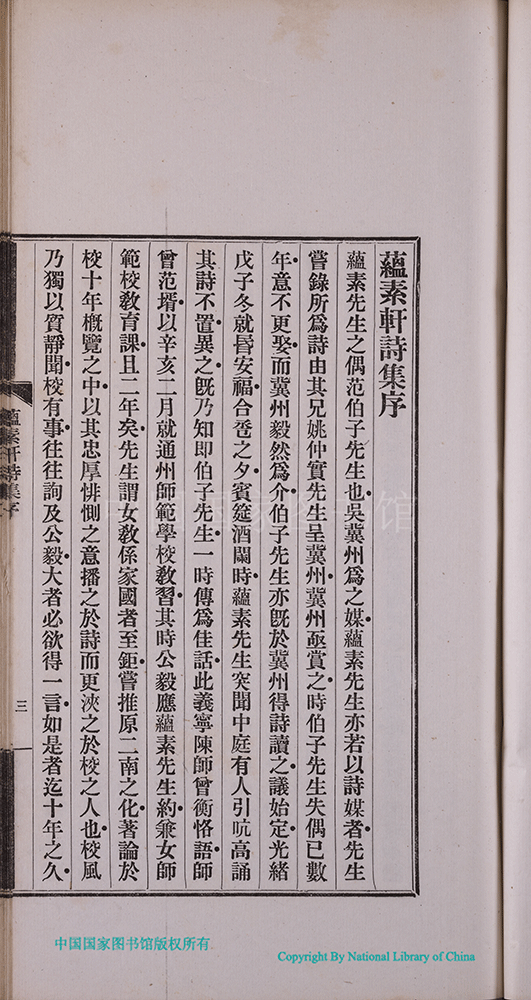 蘊素軒詩集序
蘊素先生之偶范伯子先生也吳冀州爲之媒蘊素先生亦若以詩媒者先生
嘗錄所爲詩由其兄姚仲實先生呈冀州冀州亟賞之時伯子先生失偶已數
年意不更娶而冀州毅然爲介伯子先生亦旣於冀州得詩讀之議始定光緒
戊子冬就昏安福合卺之夕賓筵酒闌時蘊素先生突聞中庭有人引吭高誦
其詩不置異之旣乃知即伯子先生一時傳爲佳話此義寧陳師曾衡恪語師
曾范壻以辛亥二月就通州師範學校敎習其時公毅應蘊素先生約兼女師
範校敎育課且二年矣先生謂女敎係家國者至鉅嘗推原二南之化著論於
校十年槪覽之中以其忠厚悱惻之意播之於詩而更浹之於校之人也校風
乃獨以質靜聞校有事往往詢及公毅大者必欲得一言如是者迄十年之久
蘊素軒詩集序
三
中国国家图书馆
中国国家图书馆版权所有
Copyright By National Library of China